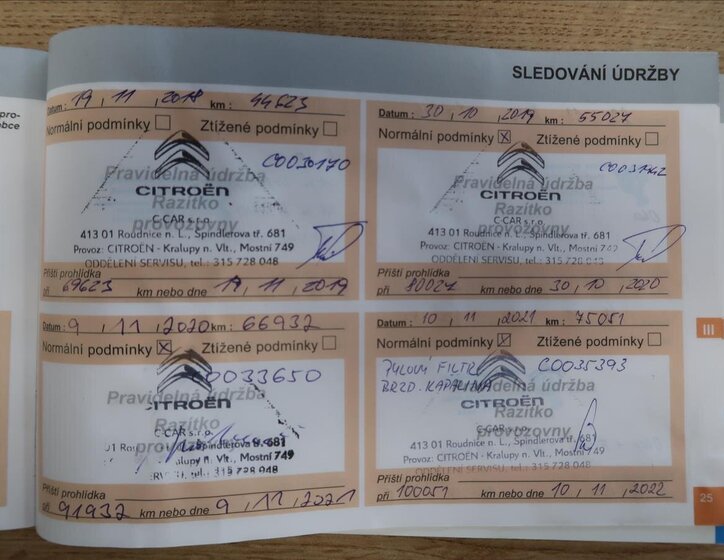 SLEDOVÁNÍ ÚDRŽBY
Datum : 19 , 11 , 2018 km : 44623
Normální podmínky Ztížené podmínky
C0030170
Pravidelná údržba
CITROËN
Razítko
provozovny
C-CAR s.r.o.
413 01 Roudnice n. L., Špindlerova tř. 681
Provoz: CITROËN - Kralupy n. Vlt., Mostní 749
ODDĚLENÍ SERVISU, tel.: 315 728 048
Příští prohlídka
při 69623 km nebo dne 19 , 11 , 2019
Datum : 30 , 10 , 2019 km : 55024
Normální podmínky X Ztížené podmínky
Pravidelná údržba
CITROËN
Razítko
provozovny
C-CAR s.r.o.
413 01 Roudnice n. L., Špindlerova tř. 681
Provoz: CITROËN - Kralupy n. Vlt., Mostní 749
ODDĚLENÍ SERVISU, tel.: 315 728 048
Příští prohlídka
při 80024 km nebo dne 30 , 10 , 2020
Datum : 9 , 11 , 2020 km : 66932
Normální podmínky X Ztížené podmínky
C0033650
Pravidelná údržba
CITROËN
Razítko
provozovny
C-CAR s.r.o.
Špindlerova tř. 681
Kralupy n. Vlt., Mostní 749
tel.: 315 728 048
Příští prohlídka
při 91932 km nebo dne 9 , 11 , 2021
Datum : 10 , 11 , 2021 km : 75051
Normální podmínky X Ztížené podmínky
PYLOVÝ FILTR C0035393
BRZD. KAPALINA
Pravidelná údržba
CITROËN
Razítko
provozovny
C-CAR s.r.o.
413 01 Roudnice n. L., Špindlerova tř. 681
Provoz: CITROËN - Kralupy n. Vlt., Mostní 749
ODDĚLENÍ SERVISU, tel.: 315 728 048
Příští prohlídka
při 100051 km nebo dne 10 , 11 , 2022
III
25